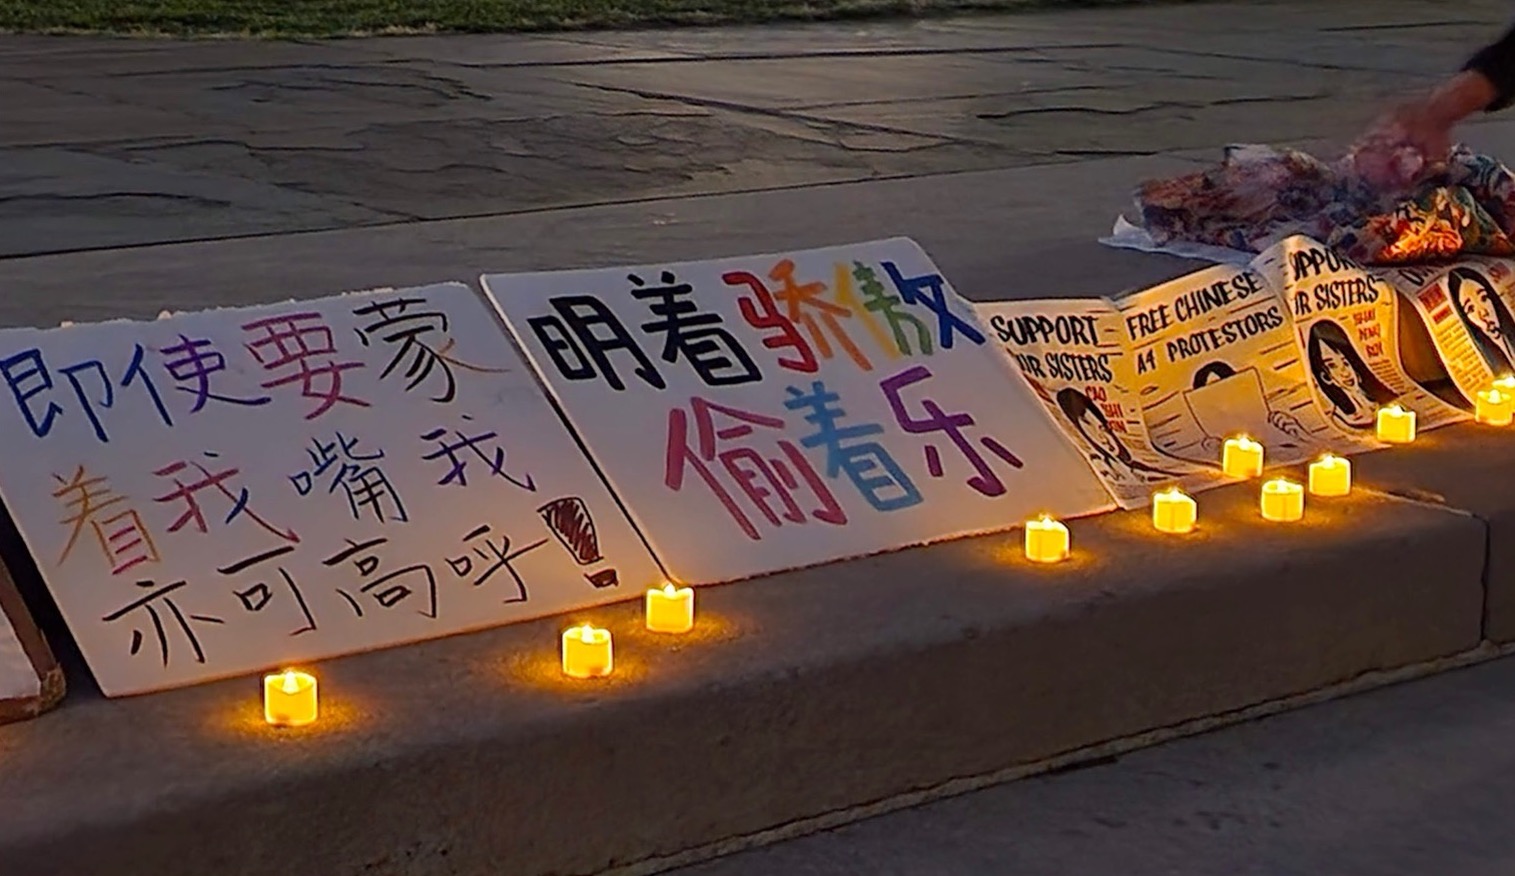 即使要蒙
着我嘴我
亦可高呼!
明着骄傲
偷着乐
SUPPORT
UR SISTERS
CAO
FREE CHINESE
A4 PROTESTORS
UPPOR
UR SISTERS